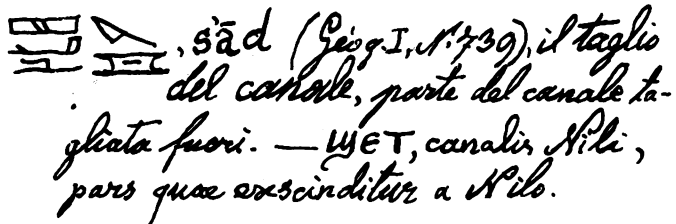 , šād (Géog. I, N.º 739), il taglio
del canale, parte del canale ta-
gliata fuori. — ϢⲈⲦ, canalis Nili,
pars quae exscinditur a Nilo.